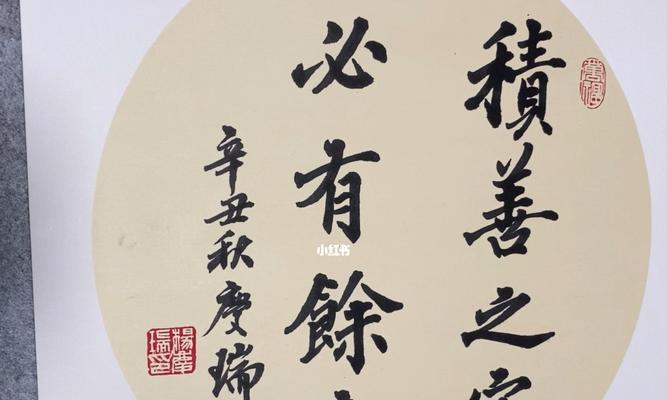 積善之
必有餘
辛丑秋慶瑞
小红书